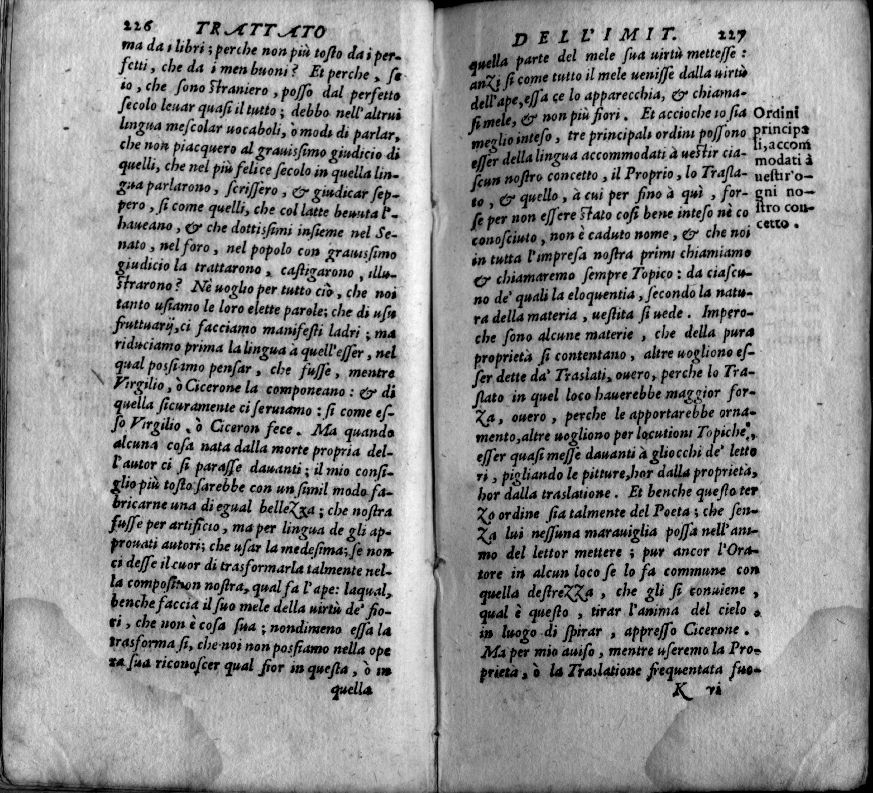 226 TRATTATO
ma da i libri; perche non più tosto da i per-
fetti, che da i men buoni? Et perche, se
io, che sono straniero, posso dal perfetto
secolo leuar quasi il tutto; debbo nell'altrui
lingua mescolar uocaboli, ò modi di parlar,
che non piacquero al grauissimo giudicio di
quelli, che nel più felice secolo in quella lin-
gua parlarono, scrissero, & giudicar sep-
pero, si come quelli, che col latte beuuta l'-
haueano, & che dottissimi insieme nel Se-
nato, nel foro, nel popolo con grauissimo
giudicio la trattarono, castigarono, illu-
strarono? Nè uoglio per tutto ciò, che noi
tanto usiamo le loro elette parole; che di usu
fruttuarij, ci facciamo manifesti ladri; ma
riduciamo prima la lingua à quell'esser, nel
qual possiamo pensar, che fusse, mentre
Virgilio, ò Cicerone la componeano: & di
quella sicuramente ci seruiamo: si come es-
so Virgilio, ò Ciceron fece. Ma quando
alcuna cosa nata dalla morte propria del-
l'autor ci si parasse dauanti; il mio consi-
glio più tosto sarebbe con un simil modo fa-
bricarne una di egual bellezza; che nostra
fusse per artificio, ma per lingua de gli ap-
prouati autori; che usar la medesima; se non
ci desse il cuor di trasformarla talmente nel-
la composition nostra, qual fa l'ape: laqual,
benche faccia il suo mele della uirtù de' fio-
ri, che non è cosa sua; nondimeno essa la
trasforma si, che noi non possiamo nella ope
ra sua riconoscer qual fior in questa, ò in
quella
DELL'IMIT. 227
quella parte del mele sua uirtù mettesse:
anzi si come tutto il mele uenisse dalla uirtù
dell'ape, essa ce lo apparecchia, & chiama-
si mele, & non più fiori. Et accioche io sia
meglio inteso, tre principali ordini possono
esser della lingua accommodati à uestir cia-
scun nostro concetto, il Proprio, lo Trasla-
to, & quello, à cui per fino à quì, for-
se per non essere stato così bene inteso nè co
conosciuto, non è caduto nome, & che noi
in tutta l'impresa nostra primi chiamiamo
& chiamaremo sempre Topico: da ciascu-
no de' quali la eloquentia, secondo la natu-
ra della materia, uestita si uede. Impero-
che sono alcune materie, che della pura
proprietà si contentano, altre uogliono es-
ser dette da' Traslati, ouero, perche lo Tra-
slato in quel loco hauerebbe maggior for-
za, ouero, perche le apportarebbe orna-
mento, altre uogliono per locutioni Topiche,
esser quasi messe dauanti à gliocchi de' letto
ri, pigliando le pitture, hor dalla proprietà,
hor dalla traslatione. Et benche questo ter
zo ordine sia talmente del Poeta; che sen-
za lui nessuna marauiglia possa nell'ani-
mo del lettor mettere; pur ancor l'Ora-
tore in alcun loco se lo fa commune con
quella destrezza, che gli si conuiene,
qual è questo, tirar l'anima del cielo,
in luogo di spirar, appresso Cicerone.
Ma per mio auiso, mentre useremo la Pro-
prietà, ò la Traslatione frequentata fuo-
K vi
Ordini
principa
li, accom
modati à
uestir'o-
gni no-
stro con-
cetto.